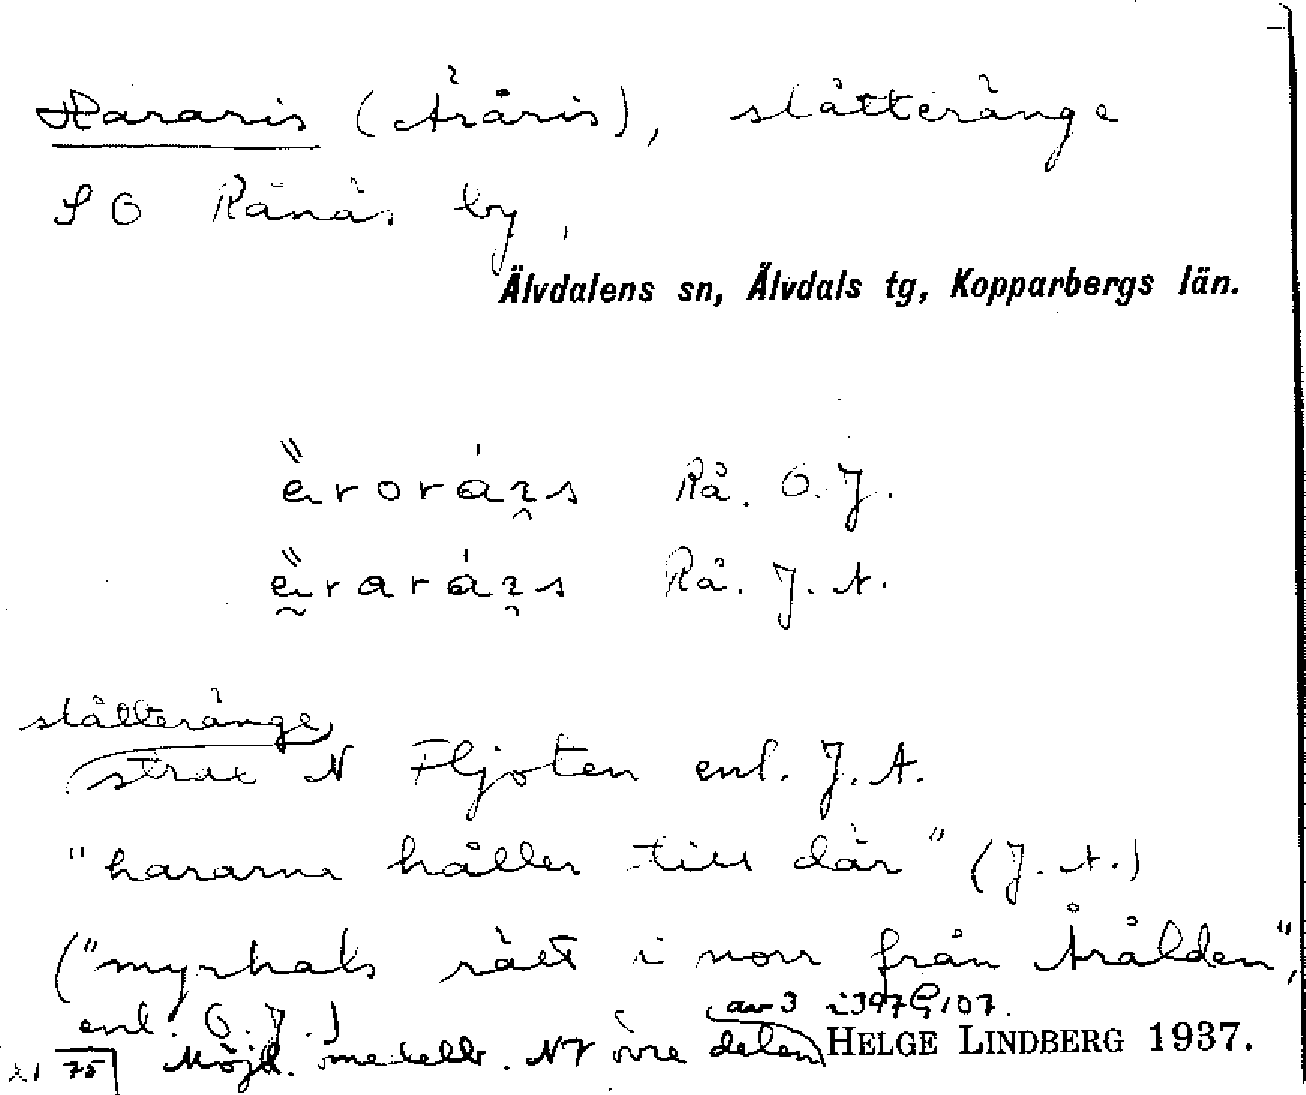 Hararis (Äråris), slåtteränge
SO Rånäs by,
Älvdalens sn, Älvdals tg, Kopparbergs län.
Rå. O. J.
Rå. J. A.
slåtteränge
strax N Fljoten enl. J. A.
"hararna håller till där" (J. A.)
("myrhals rätt i norr från Åråslden",
enl. O. J.)
av 3 i 397 G 107.
Möjl. medellr. NV övre delen
HELGE LINDBERG 1937.